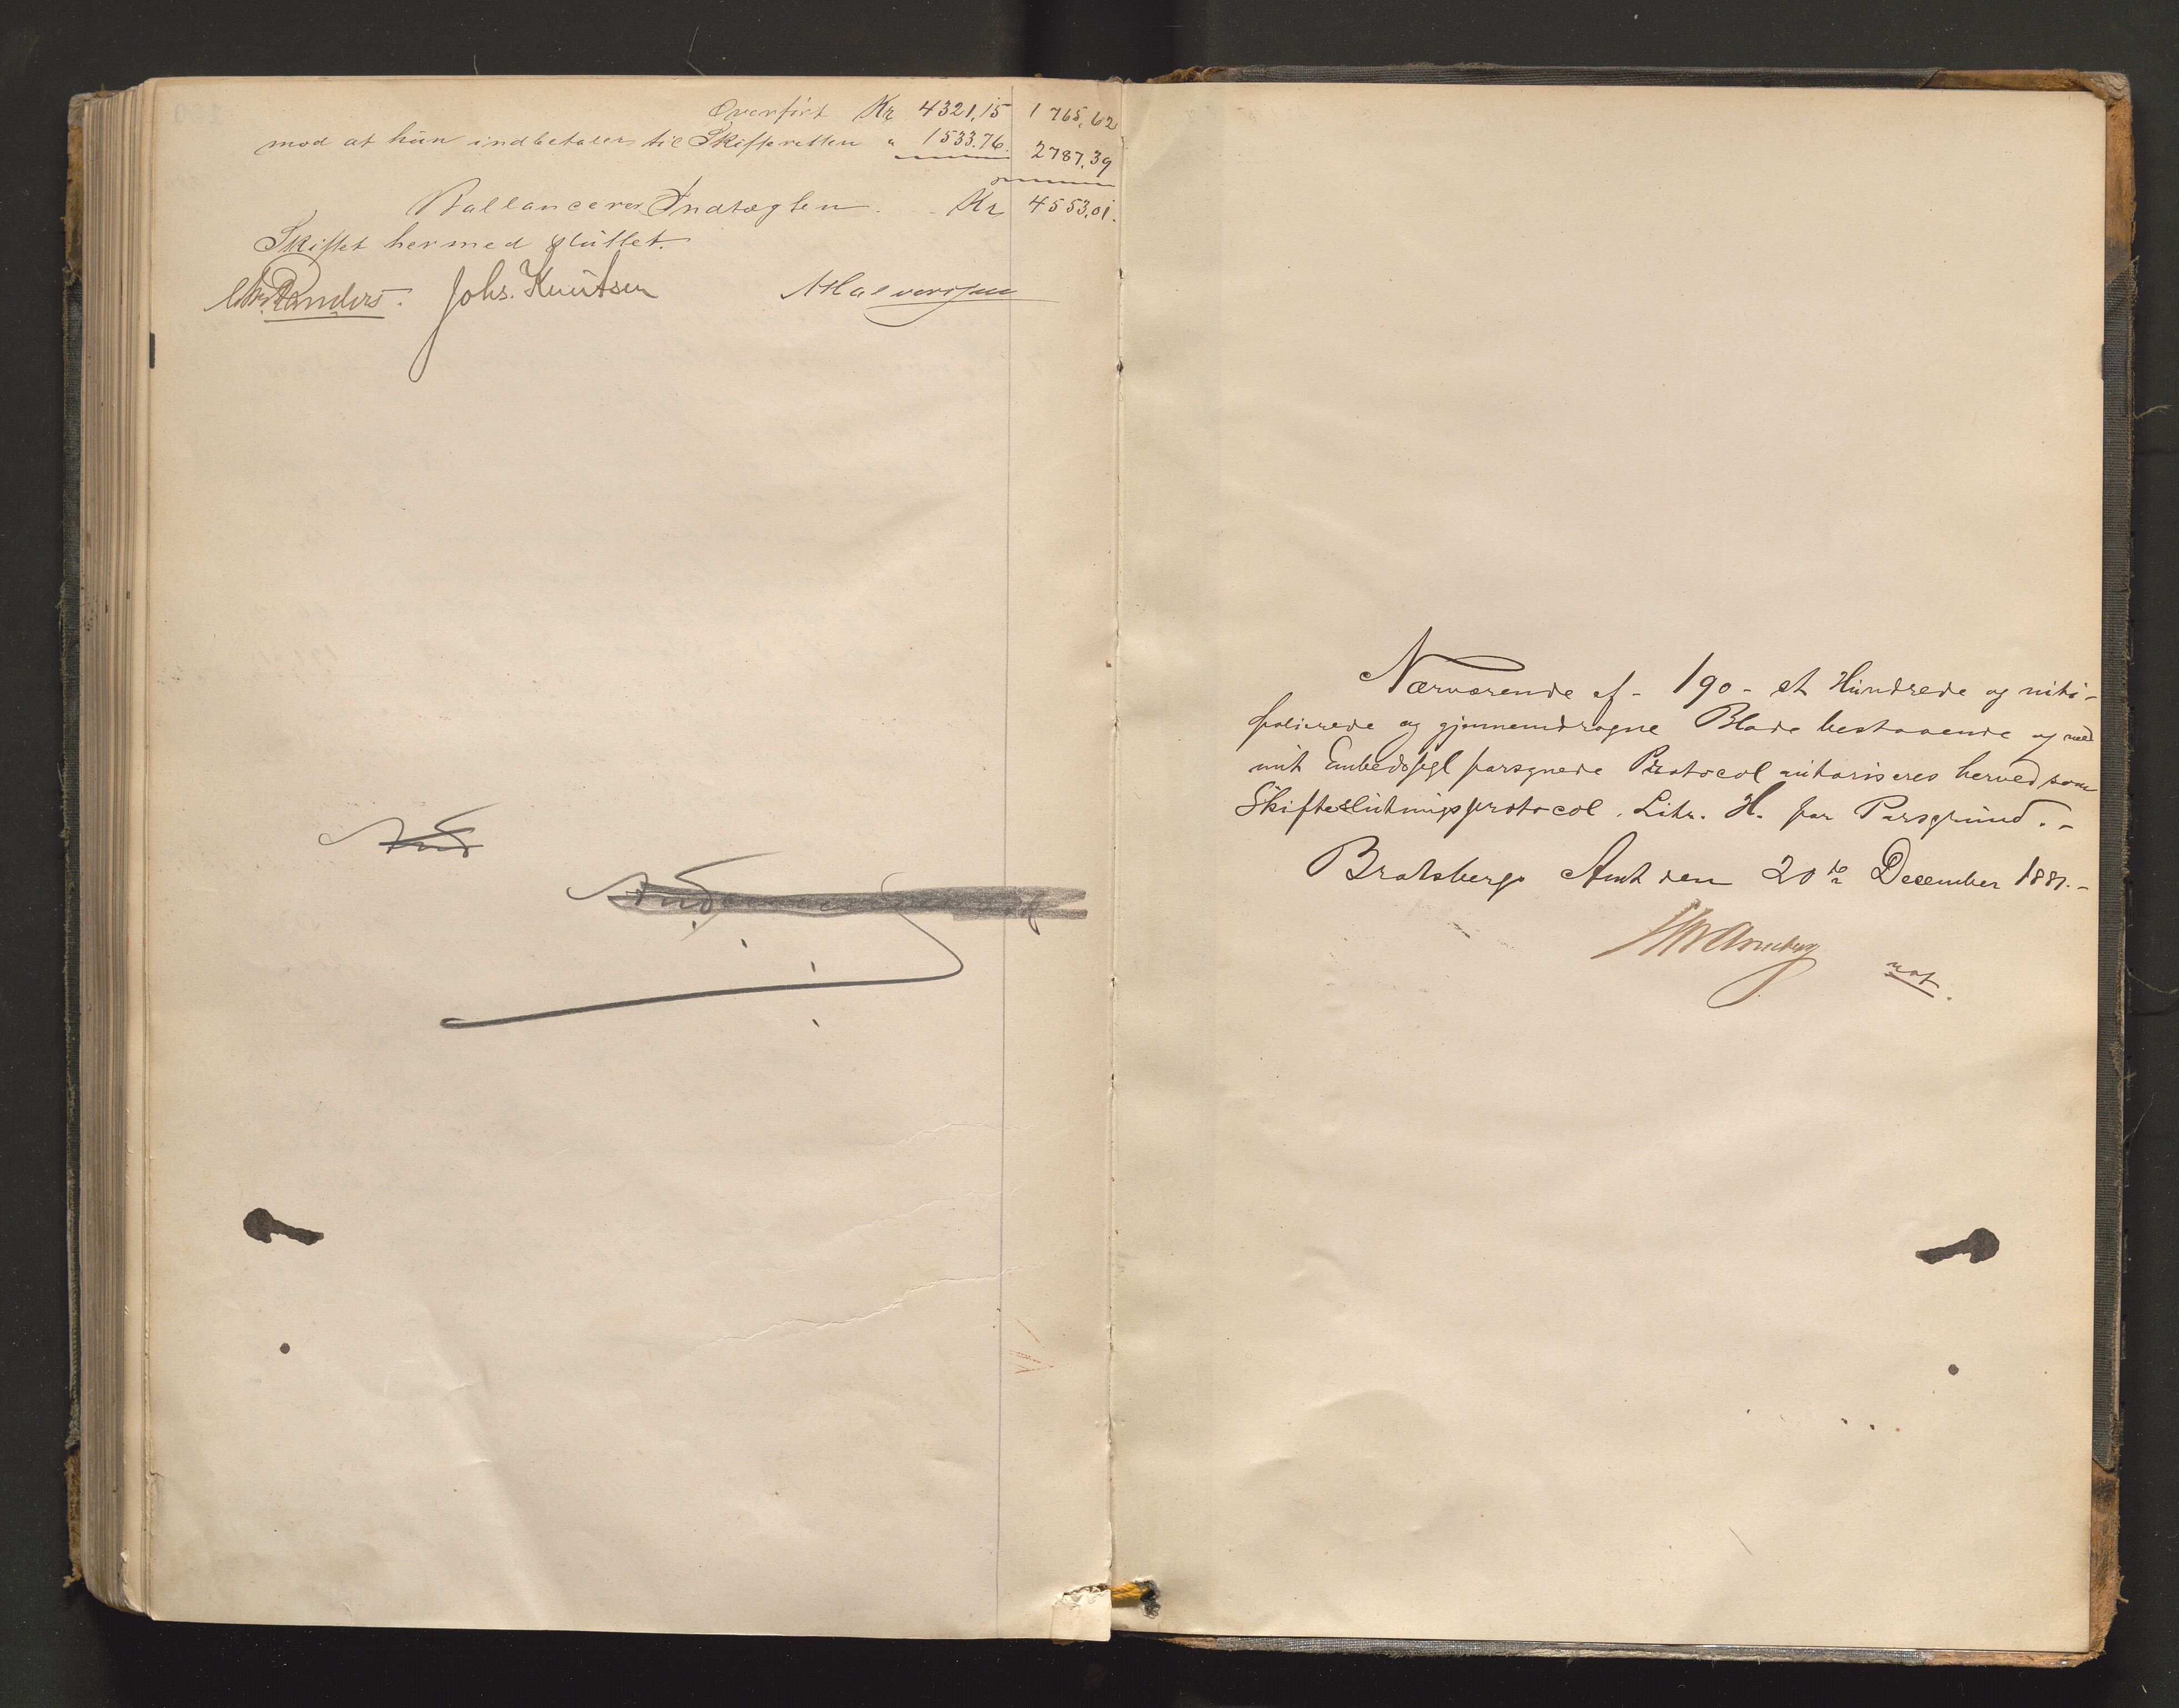 Overført Kr 4321,15 1765,62
mod at hun indbetaler til Skifteretten " 1533.76. 2787,39
Ballancerer Indtægten. Kr 4553,01.
Skiftet hermed sluttet.
Chr. Randers. Johs. Knutsen A Halvorsen
And
Nærværende af - 190 - et Hundrede og niti -
folierede og gjennemdragne Blade bestaaende og med
mit Embedssegl forsynede Protocol autoriseres herved som
Skifteslutningsprotocol. Litr. H. for Porsgrund. -
Bratsbergs Amt den 20de December 1881. -